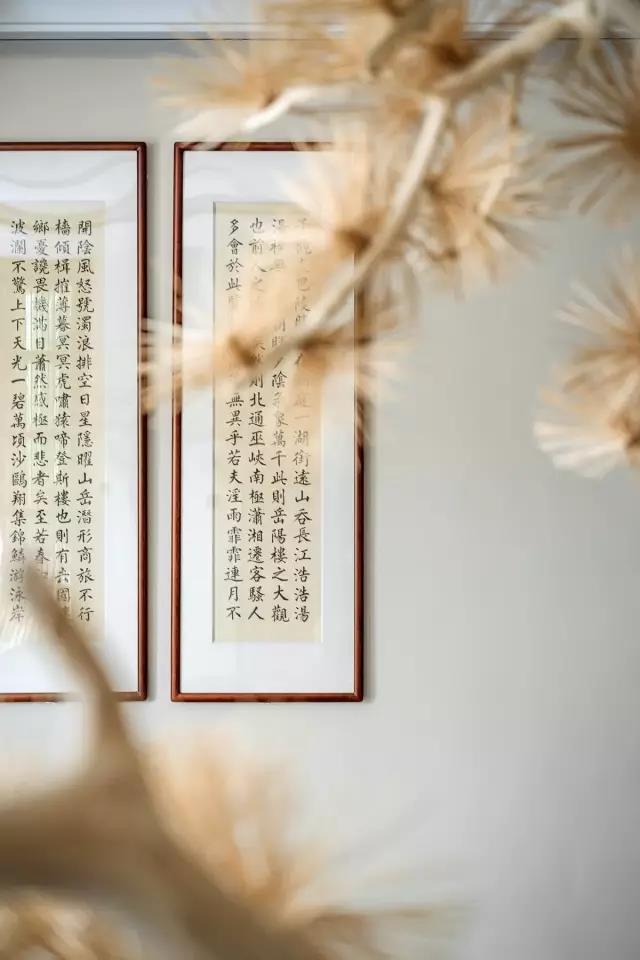 巴陵一湖銜遠山吞長江浩浩湯
無陰萬千此則岳陽樓之大觀
也前人之則北通巫峽南極瀟湘遷客騷人
多會於此無異乎若夫淫雨霏霏連月不
開陰風怒號濁浪排空日星隱曜山岳潛形商旅不行
檣傾楫摧薄暮冥冥虎嘯猿啼登斯樓也則有去國
鄉憂讒畏譏滿目蕭然感極而悲者矣至若春
波瀾不驚上下天光一碧萬頃沙鷗翔集錦鱗游泳岸